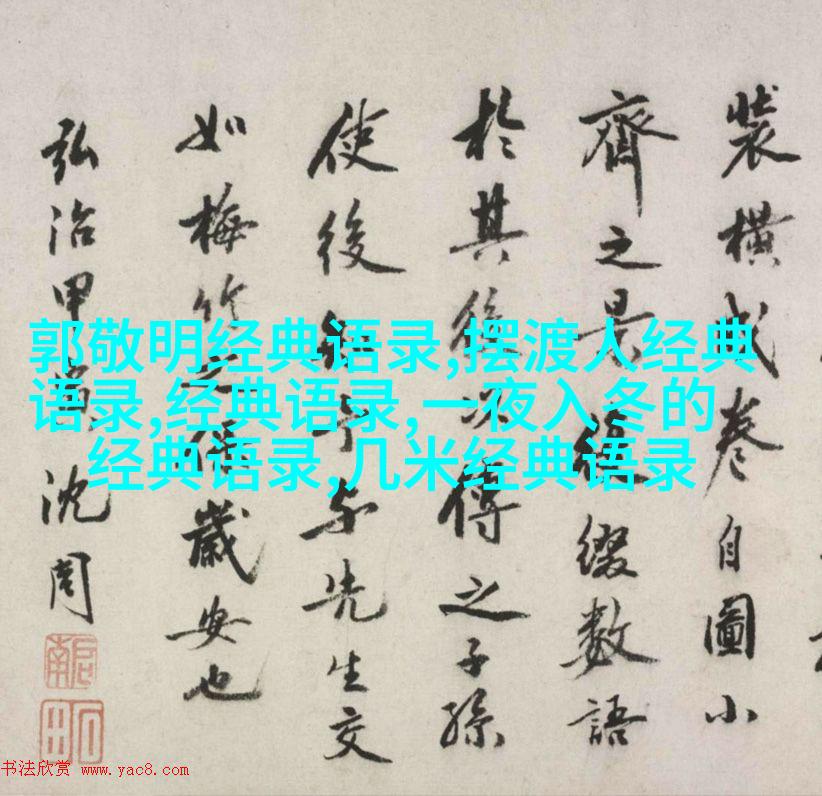 郭敬明经典语录,摆渡人经典
语录,经典语录,一夜入冬的
经典语录,几米经典语录
裝橫成卷自圖小
齊之後綴數語
於其後以傳之子孫
使後知予与先生交
如梅竹之保歲安也
弘治甲寅沈周
啟南
石田
书法欣赏 www.yac8.com